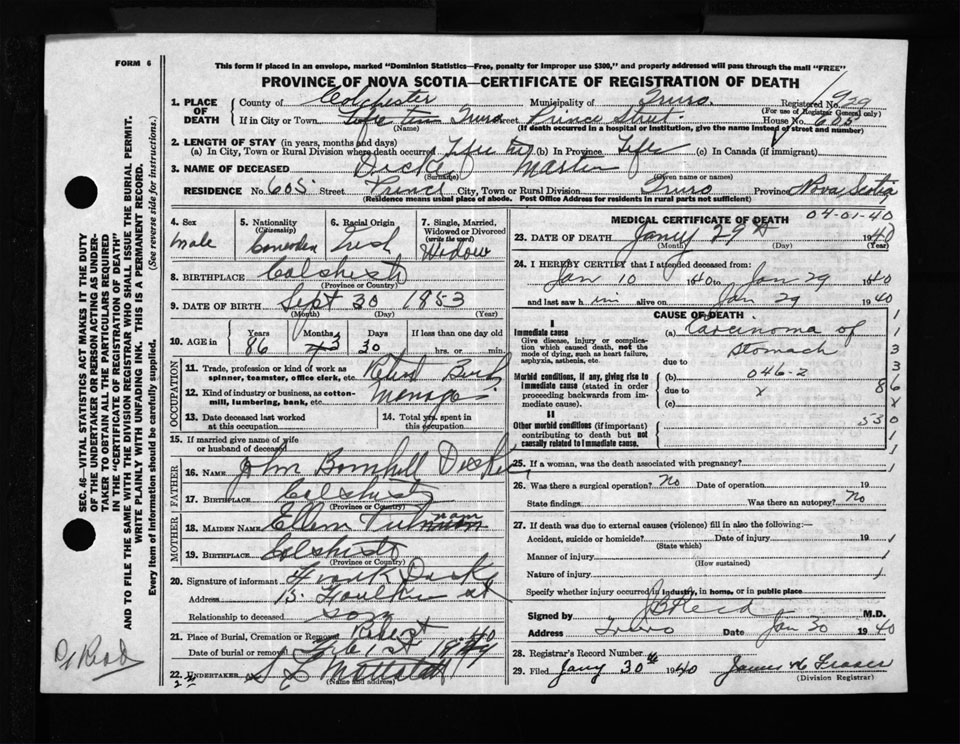 FORM 6
This form if placed in an envelope, marked "Dominion Statistics—Free, penalty for improper use $300," and properly addressed will pass through the mail "FREE"
PROVINCE OF NOVA SCOTIA—CERTIFICATE OF REGISTRATION OF DEATH
1. PLACE OF DEATH
County of Colchester Municipality of Truro. Registered No. 1939
(For use of Registrar General only)
If in City or Town Truro Street Prince Street. House No. 605
(Name) (If death occurred in a hospital or institution, give the name instead of street and number)
2. LENGTH OF STAY (in years, months and days)
(a) In City, Town or Rural Division where death occurred (b) In Province Life (c) In Canada (if immigrant)
3. NAME OF DECEASED Martin
(Surname) (Given name or names)
RESIDENCE No. 605 Street Prince City, Town or Rural Division Truro Province Nova Scotia
(Residence means usual place of abode. Post Office Address for residents in rural parts not sufficient)
SEC. 46—VITAL STATISTICS ACT MAKES IT THE DUTY
OF THE UNDERTAKER OR PERSON ACTING AS UNDER-
TAKER TO OBTAIN ALL THE PARTICULARS REQUIRED
IN THE "CERTIFICATE OF REGISTRATION OF DEATH"
AND TO FILE THE SAME WITH THE DIVISION REGISTRAR WHO SHALL ISSUE THE BURIAL PERMIT.
WRITE PLAINLY WITH UNFADING INK. THIS IS A PERMANENT RECORD.
Every item of Information should be carefully supplied. (See reverse side for instructions.)
4. Sex
male
5. Nationality
(Citizenship)
Canadian
6. Racial Origin
Irish
7. Single, Married,
Widowed or Divorced
(write the word)
Widow
8. BIRTHPLACE
(Province or Country)
9. DATE OF BIRTH Sept 30 1853
(Month) (Day) (Year)
10. AGE in
Years
86
Months
3
Days
30
If less than one day old
hrs. or min.
OCCUPATION
11. Trade, profession or kind of work as
spinner, teamster, office clerk, etc.
12. Kind of industry or business, as cotton-
mill, lumbering, bank, etc.
13. Date deceased last worked
at this occupation
14. Total yrs. spent in
this occupation
15. If married give name of wife
or husband of deceased
FATHER
16. NAME John
17. BIRTHPLACE
(Province or Country)
MOTHER
18. MAIDEN NAME Ellen Putnam
19. BIRTHPLACE
(Province or Country)
20. Signature of informant Frank
Address
Relationship to deceased Son
21. Place of Burial, Cremation or Removal
Date of burial or removal Feb 1st 1940
22. UNDERTAKER
(Name and address)
MEDICAL CERTIFICATE OF DEATH
04-01-40
23. DATE OF DEATH Jany 29th 1940
(Month) (Day)
24. I HEREBY CERTIFY that I attended deceased from:
Jan 10 1940 to Jan 29 1940
and last saw him alive on Jan 29 1940
CAUSE OF DEATH
I
Immediate cause
Give disease, injury or complica-
tion which caused death, not the
mode of dying, such as heart failure,
asphyxia, asthenia, etc.
(a) Carcinoma of
stomach
due to
Morbid conditions, if any, giving rise to
immediate cause (stated in order
proceeding backwards from im-
mediate cause).
(b) 046-2
due to x
(c)
II
Other morbid conditions (if important)
contributing to death but not
causally related to immediate cause.
25. If a woman, was the death associated with pregnancy?
26. Was there a surgical operation? No Date of operation 19
State findings Was there an autopsy? No
27. If death was due to external causes (violence) fill in also the following:—
Accident, suicide or homicide? Date of injury 19
(State which)
Manner of injury
(How sustained)
Nature of injury
Specify whether injury occurred in industry, in home, or in public place
Signed by M.D.
Address Truro Date Jan 30 1940
28. Registrar's Record Number
29. Filed Jany 30th 1940 James
(Division Registrar)